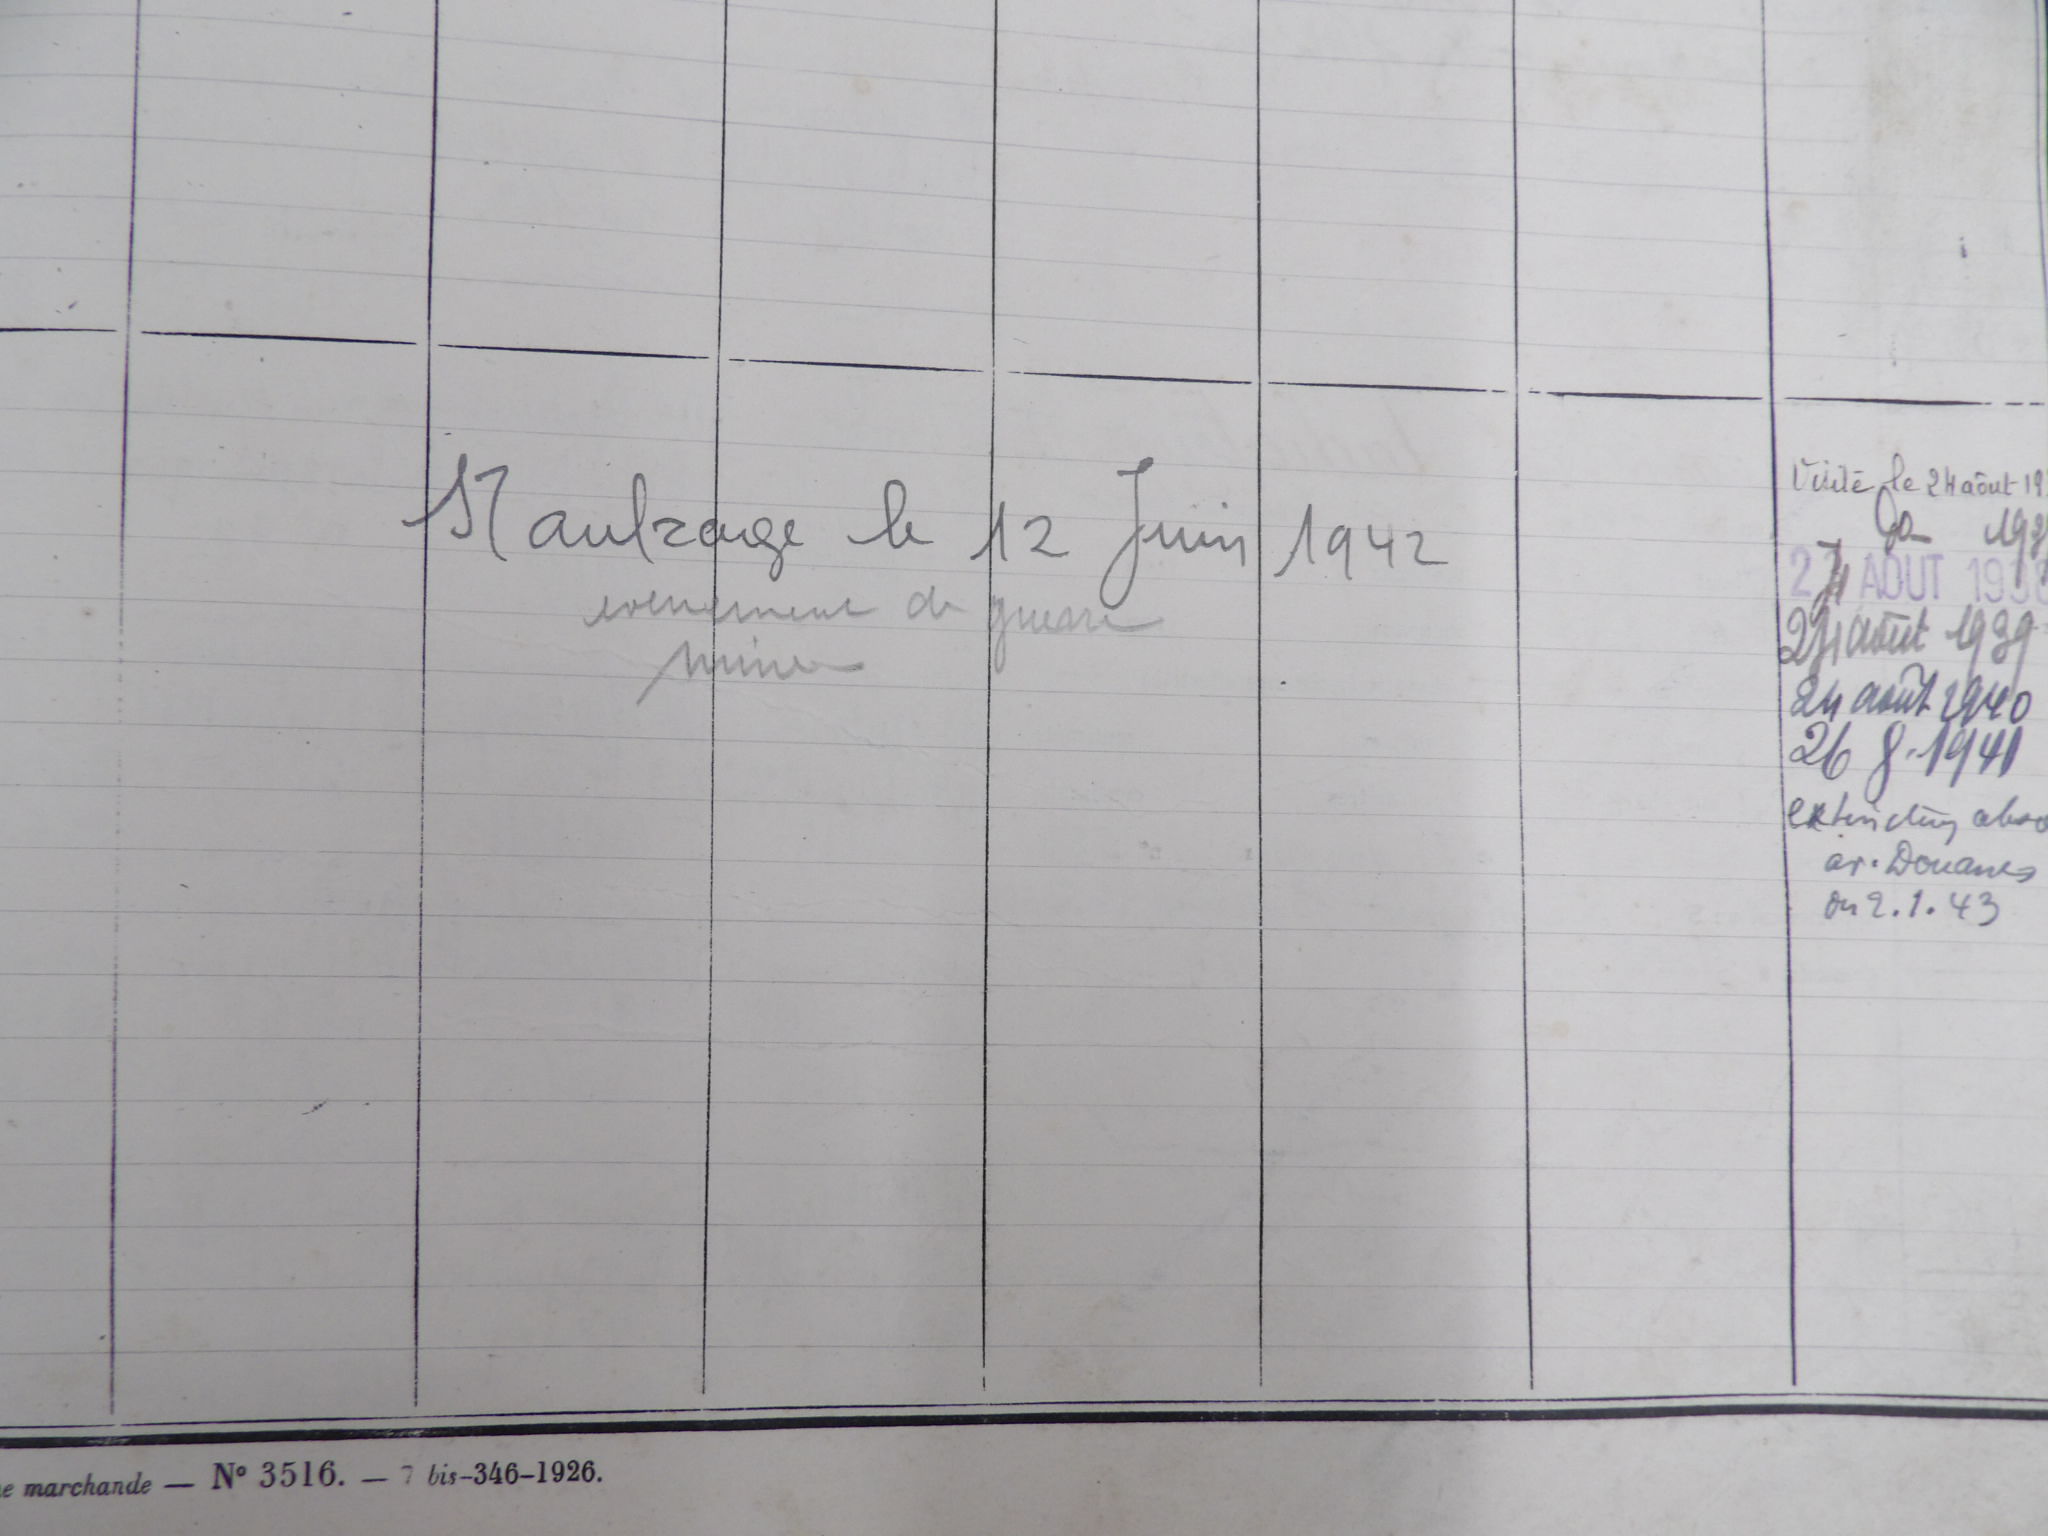 Naufrage le 12 Juin 1942
evenement de guerre
mine
Visité le 24 août 19
193
24 AOUT 1938
24 août 1939
24 août 1940
26 8.1941
av. Douanes
du 2.1.43
e marchande — N° 3516. — 7 bis-346-1926.